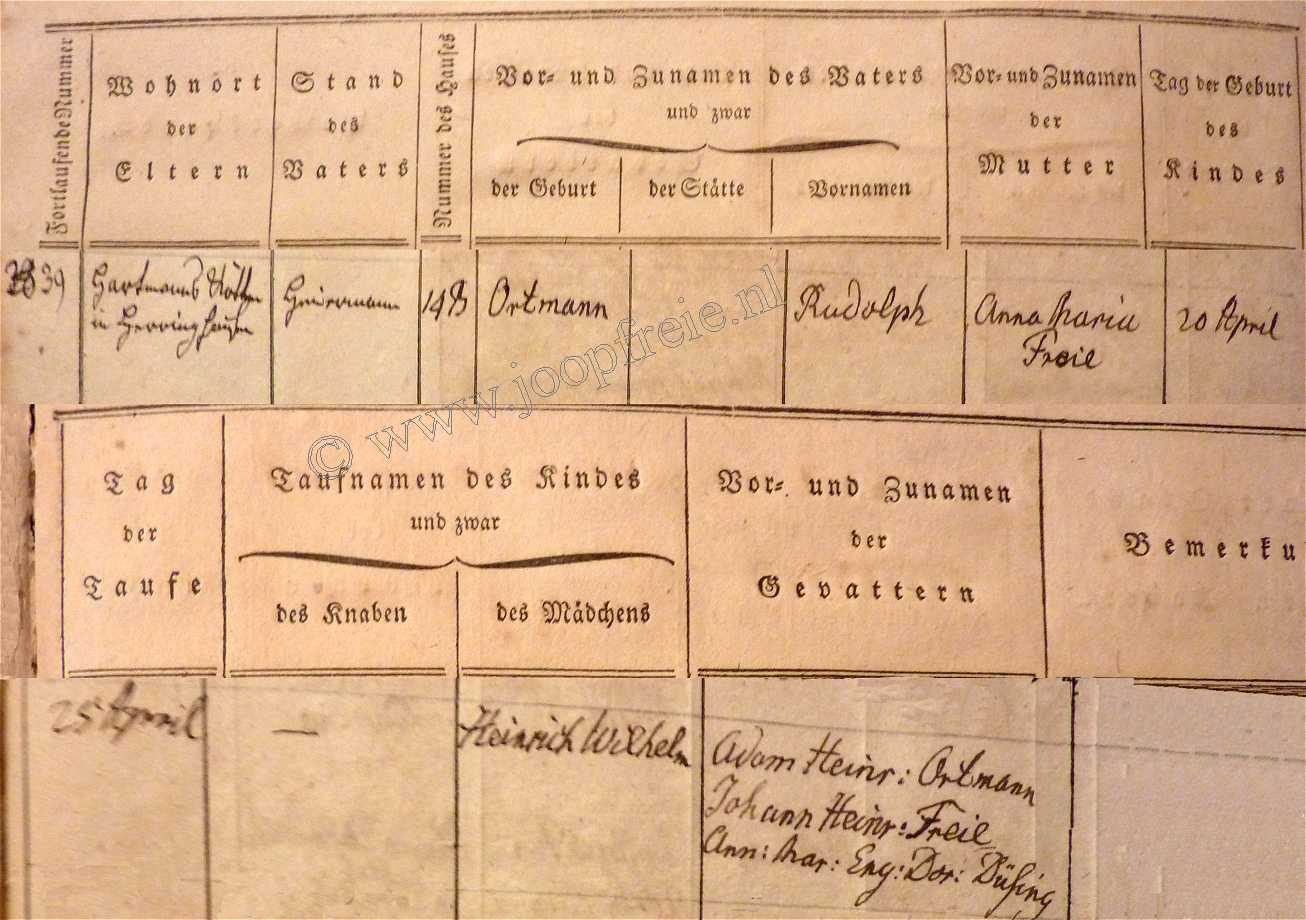 Fortlaufende Nummer
Wohnort
der
Eltern
Stand
des
Vaters
Nummer des Hauses
Vor- und Zunamen des Vaters
und zwar
der Geburt
der Stätte
Vornamen
Vor- und Zunamen
der
Mutter
Tag der Geburt
des
Kindes
39
Hartmanns
in Herringhausen
Heuermann
148
Ortmann
Rudolph
Anna Maria
Freie
20 April
© www.joopfreie.nl
Tag
der
Taufe
Taufnamen des Kindes
und zwar
des Knaben
des Mädchens
Vor- und Zunamen
der
Gevattern
Bemerku
25 April
—
Heinrich Wilhelm
Adam Heinr: Ortmann
Johann Heinr: Freie
Ann: Mar: Eng: Dor: Düsing